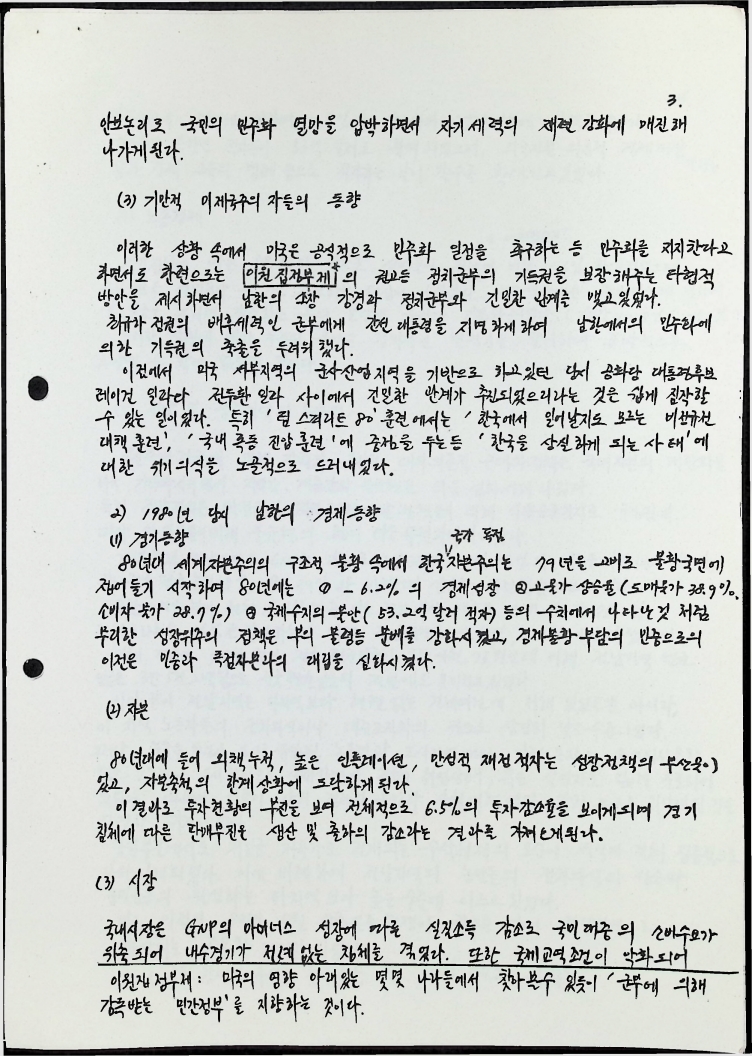 3.
안보논리로 국민의 민주화 열망을 압박하면서 자기세력의 재편 강화에 매진해
나가게된다.
(3) 기만적 미제국주의 자들의 동향
이러한 상황 속에서 미국은 공식적으로 민주화 일정을 촉구하는 등 민주화를 지지한다고
하면서도 한편으로는 이원집정부제* 의 권고등 정치군부의 기득권을 보장해주는 타협적
방안을 제시하면서 남한의 소장 강경파 정치군부와 긴밀한 관계를 맺고있었다.
최규하 정권의 배후세력인 군부에게 간선 대통령을 지명하게하여 남한에서의 민주화에
의한 기득권의 축출을 두려워했다.
이점에서 미국 서부지역의 군사산업지역을 기반으로 하고있던 당시 공화당 대통령후보
레이건 일파와 전두환 일파 사이에서 긴밀한 관계가 추진되었으리라는 것은 쉽게 짐작할
수 있는 일이었다. 특히 '팀 스피리트 80' 훈련에서는 '한국에서 일어날지도 모르는 비정규전
대책훈련', '국내폭동 진압훈련'에 중점을 두는등 '한국을 상실하게 되는 사태'에
대한 위기의식을 노골적으로 드러내었다.
2) 1980년 당시 남한의 경제동향
(1) 경기동향
국가 독점
80년대 세계자본주의의 구조적 불황 속에서 한국 자본주의는 79년을 고비로 불황국면에
접어들기 시작하여 80년에는 ① -6.2%의 경제성장 ② 고물가 상승률 (도매물가 38.9%,
소비자 물가 28.7%) ③ 국제수지의 불안 (53.2억 달러 적자) 등의 수치에서 나타난것 처럼
무리한 성장위주의 정책은 부의 불평등 분배를 강화시켰고, 경제불황 부담의 민중으로의
이전은 민중과 독점자본과의 대립을 심화시켰다.
(2) 자본
80년대에 들어 외채누적, 높은 인플레이션, 만성적 재정적자는 성장정책의 부산물이
었고, 자본축적의 한계상황에 도달하게된다.
이결과로 투자현황의 부진을 보여 전체적으로 6.5%의 투자감소율을 보이게되며 경기
침체에 따른 판매부진은 생산 및 출하의 감소라는 결과를 가져오게된다.
(3) 시장
국내시장은 GNP의 마이너스 성장에 따른 실질소득 감소로 국민대중의 소비수요가
위축되어 내수경기가 전례없는 침체를 겪었다. 또한 국제교역조건이 악화되어
이원집정부제: 미국의 영향 아래있는 몇몇 나라들에서 찾아볼수 있듯이 '군부에 의해
감독받는 민간정부'를 지향하는 것이다.